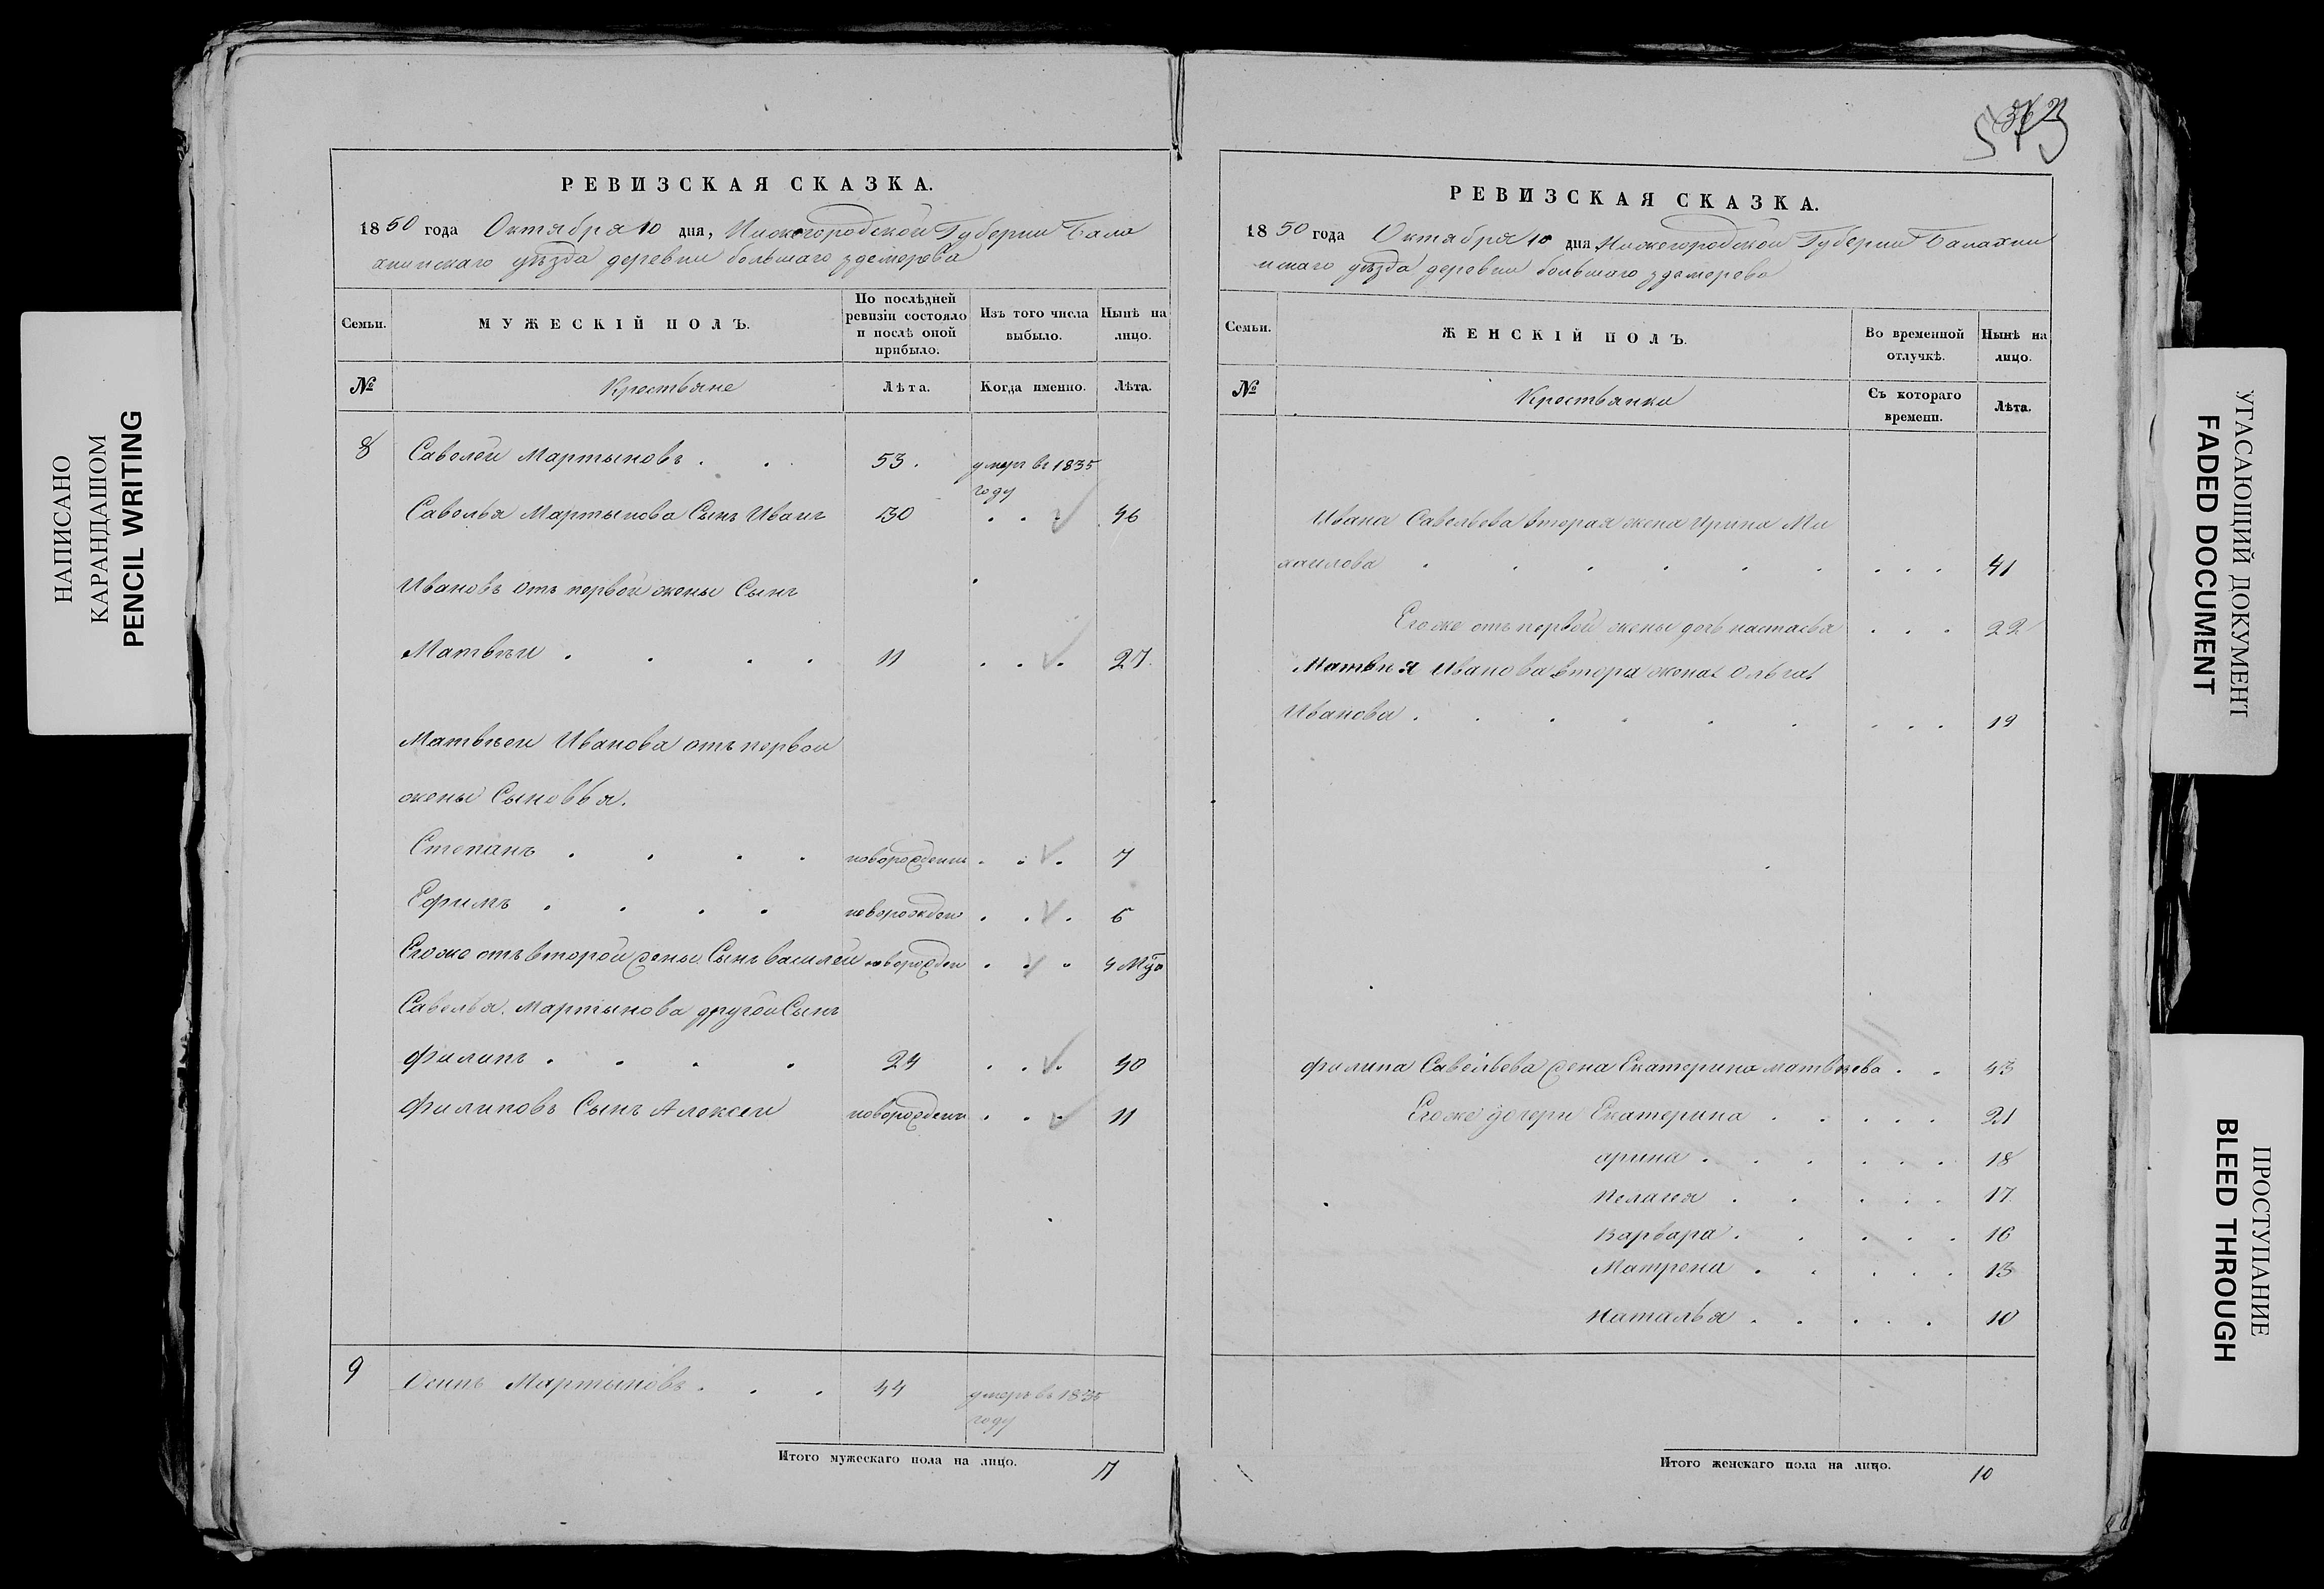 НАПИСАНО
КАРАНДАШОМ
PENCIL WRITING
РЕВИЗСКАЯ СКАЗКА.
1850 года Октября 10 дня, Нижегородской Губернии Бала
хнинскаго уѣзда деревни большаго
Семьи.
МУЖЕСКІЙ ПОЛЪ.
По послѣдней ревизіи состояло и послѣ оной прибыло.
Изъ того числа выбыло.
Нынѣ на лицо.
№
Крестьяне
Лѣта.
Когда именно.
Лѣта.
8 Савелей Мартыновъ . . 53. умеръ въ 1835
году
Савелья Мартынова Сынъ Иванъ 30 . . . 46
Ивановъ отъ первой жены Сынъ
Матвѣи . . . . 11 . . . 27.
Матвѣеи Иванова отъ первои
жены Сыновья.
Степанъ . . . . новорожденн . . . 7
Ефимъ . . . . новорожден . . . 6
Егоже отъ второй жены Сынъ василей новорожден . . . 4 М
Савелья Мартынова другой Сынъ
филипъ . . . . 24 . . . 40
филиповъ Сынъ Алексеи новорожденн . . . 11
9 Осипъ Мартыновъ . . . 44 умеръ въ 1835
году
Итого мужескаго пола на лицо. 7
РЕВИЗСКАЯ СКАЗКА.
1850 года Октября 10 дня Нижегородской Губернии Балахни
нскаго уѣзда деревни большаго
Семьи.
ЖЕНСКІЙ ПОЛЪ.
Во временной отлучкѣ.
Нынѣ на лицо.
№
Крестьянки
Съ котораго времени.
Лѣта.
Ивана Савельева вторая жена Ирина Ми
хаилова . . . . . . . . . 41
Егоже отъ первой жены дочь настасья . . . 22
Матвѣя Иванова втора жена Ольга
Иванова . . . . . . . . . 19
филипа Савельева жена Екатерина матвѣева . . 43
Егоже дочери Екатерина . . . . . 21
арина . . . . . . 18
Пелагея . . . . . 17
Варвара . . . . . 16
Матрена . . . . . 13
Наталья . . . . . 10
Итого женскаго пола на лицо. 10
УГАСАЮЩИЙ ДОКУМЕНТ
FADED DOCUMENT
ПРОСТУПАНИЕ
BLEED THROUGH